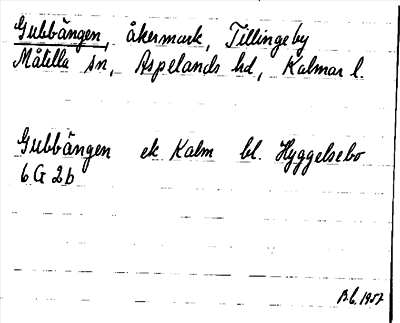 Gubbängen, åkermark, Tillingeby
Målilla sn, Aspelands hd, Kalmar l.
Gubbängen ek Kalm bl. Hyggelsebo
6 G 2b
B.C. 1957